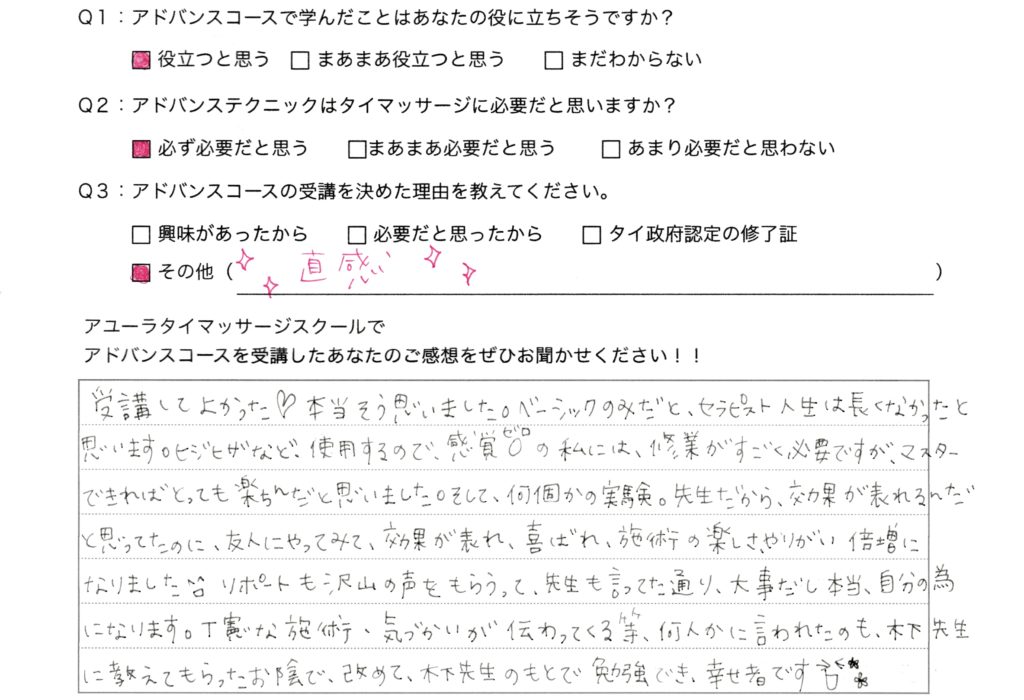 Q1：アドバンスコースで学んだことはあなたの役に立ちそうですか？
役立つと思う まあまあ役立つと思う まだわからない
Q2：アドバンステクニックはタイマッサージに必要だと思いますか？
必ず必要だと思う まあまあ必要だと思う あまり必要だと思わない
Q3：アドバンスコースの受講を決めた理由を教えてください。
興味があったから 必要だと思ったから タイ政府認定の修了証
その他（ 直感 ）
アユーラタイマッサージスクールで
アドバンスコースを受講したあなたのご感想をぜひお聞かせください！！
受講してよかった♡本当そう思いました。ベーシックのみだと、セラピスト人生は長くなかったと
思います。ヒジヒザなど、使用するので、感覚ゼロの私には、修業がすごく必要ですが、マスター
できればとっても楽ちんだと思いました。そして、何個かの実験。先生だから、効果が表れるんだ
と思ってたのに、友人にやってみて、効果が表れ、喜ばれ、施術の楽しさ、やりがい倍増に
なりました リポートも沢山の声をもらうって、先生も言ってた通り、大事だし本当、自分の為
になります。丁寧な施術、気づかいが伝わってくる等、何人かに言われたのも、木下先生
に教えてもらったお陰で、改めて、木下先生のもとで勉強でき、幸せ者です